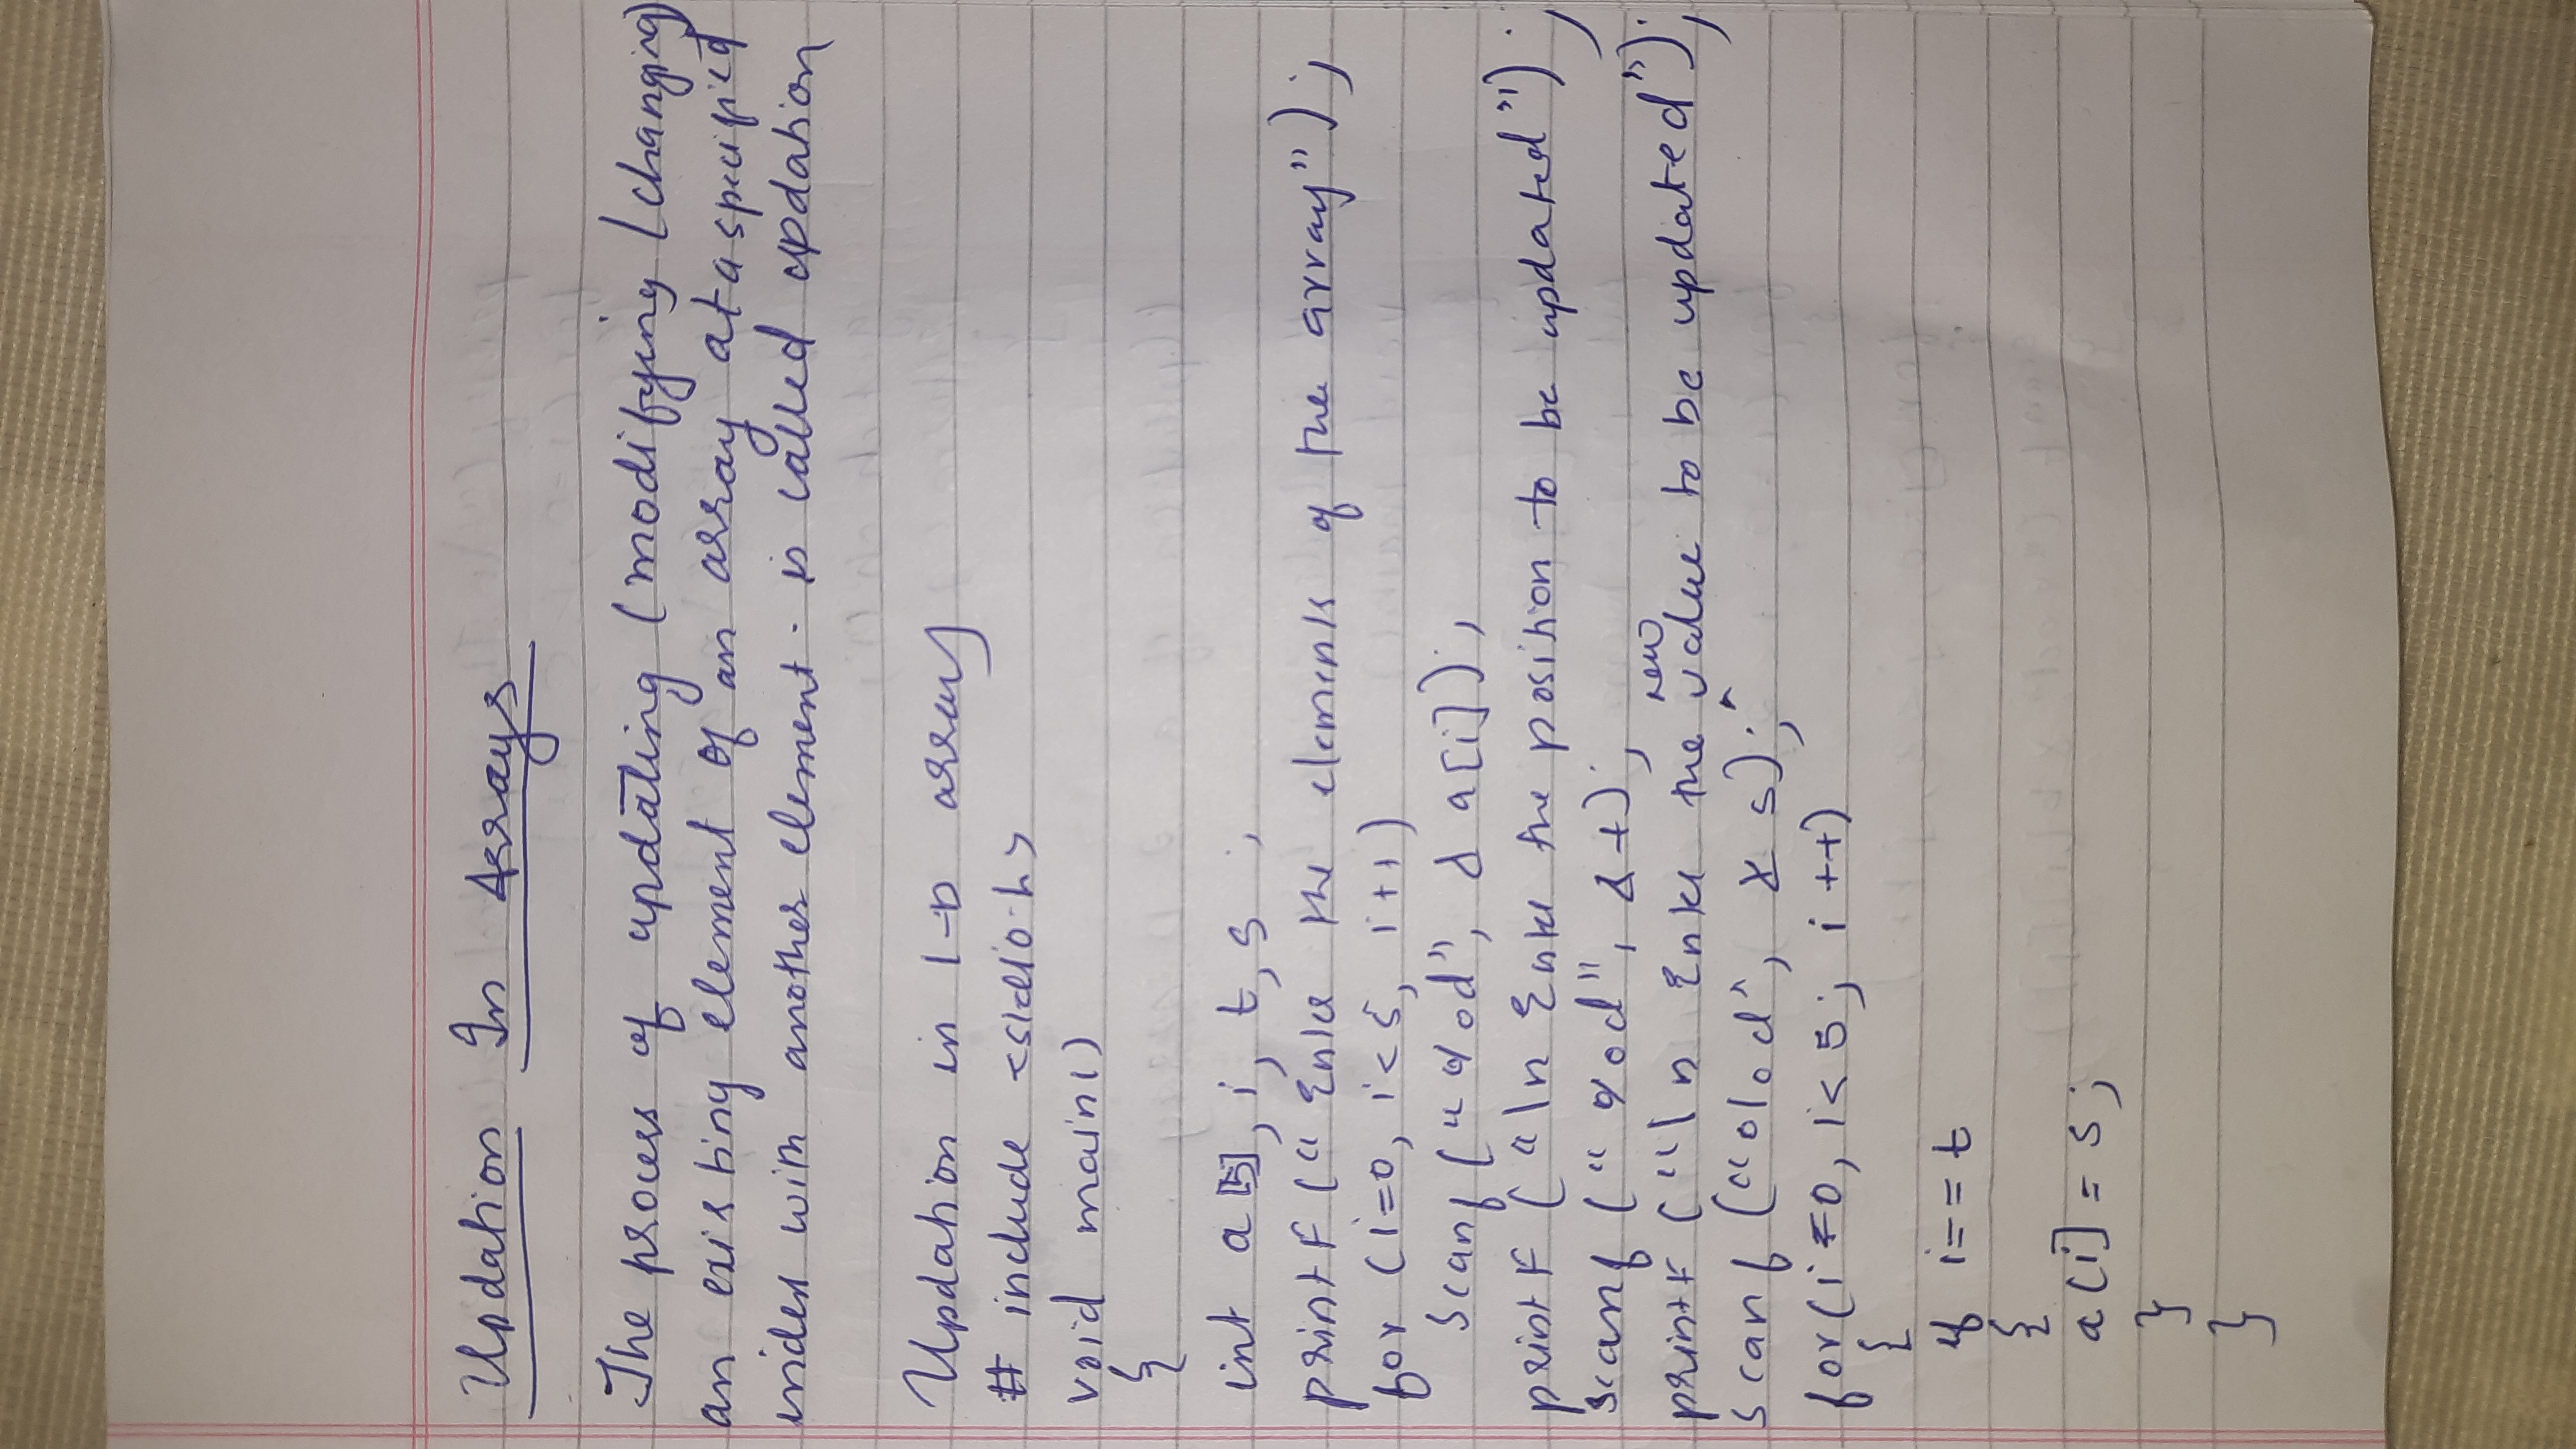 Updation In Arrays
The process of updating (modifying / changing)
an existing element of an array at a specified
index with another element. is called updation
Updation in 1-D array
# include <stdio.h>
void main()
{
int a[5], i, t, s ;
printf (" Enter the elements of the array");
for (i=0, i<5, i++)
scanf ("%d", & a[i]);
printf ("\n Enter the position to be updated");
scanf ("%d", &t);
printf ("\n Enter the new value to be updated");
scanf ("%d", & s);
for(i=0, i<5; i++)
{
if i==t
{
a[i] = s;
}
}